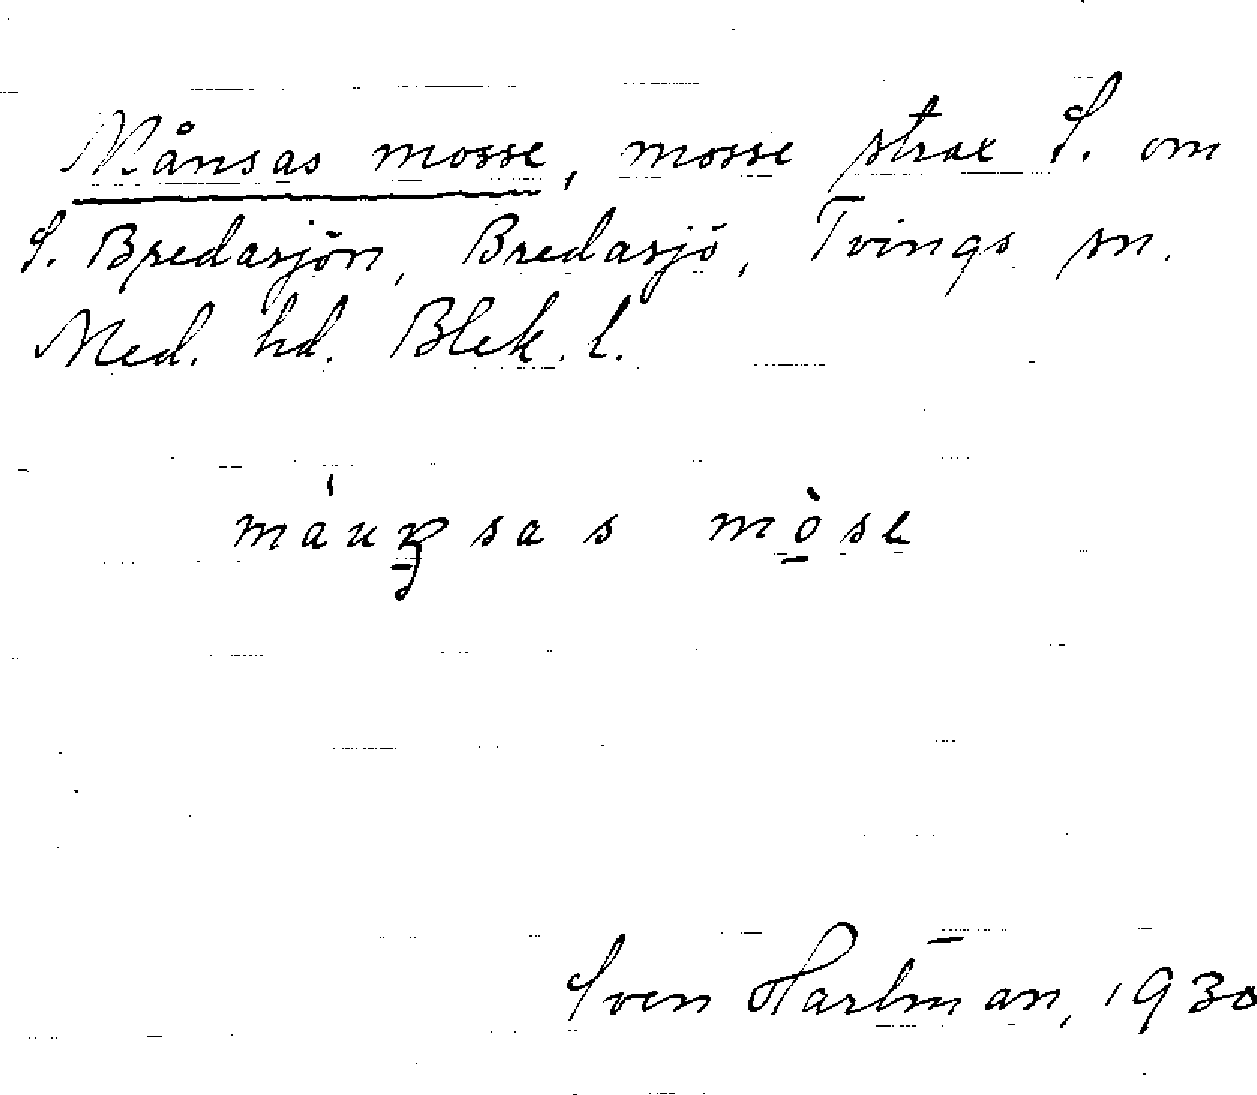 Månsas mosse, mosse strax S. om
S. Bredasjön, Bredasjö, Tvings sn.
Med. hd. Blek. l.
mòse
Sven Hartman, 1930